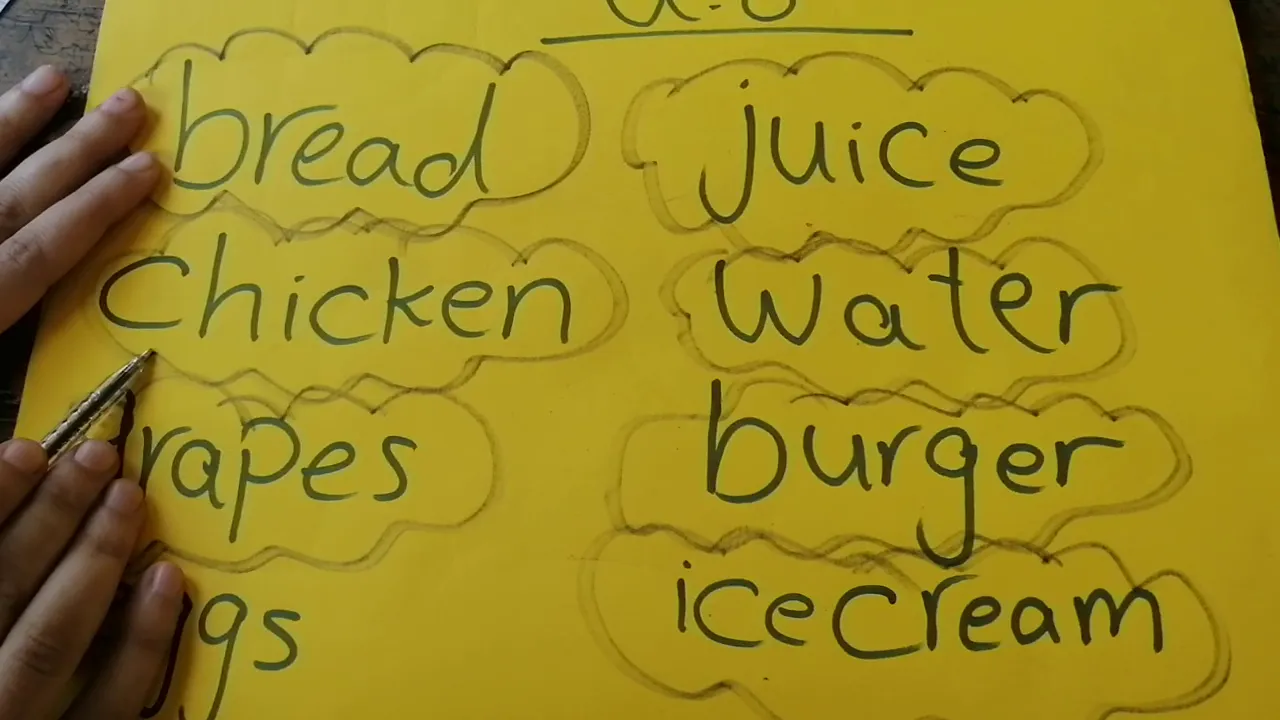 bread juice
chicken water
rapes burger
gs icecream